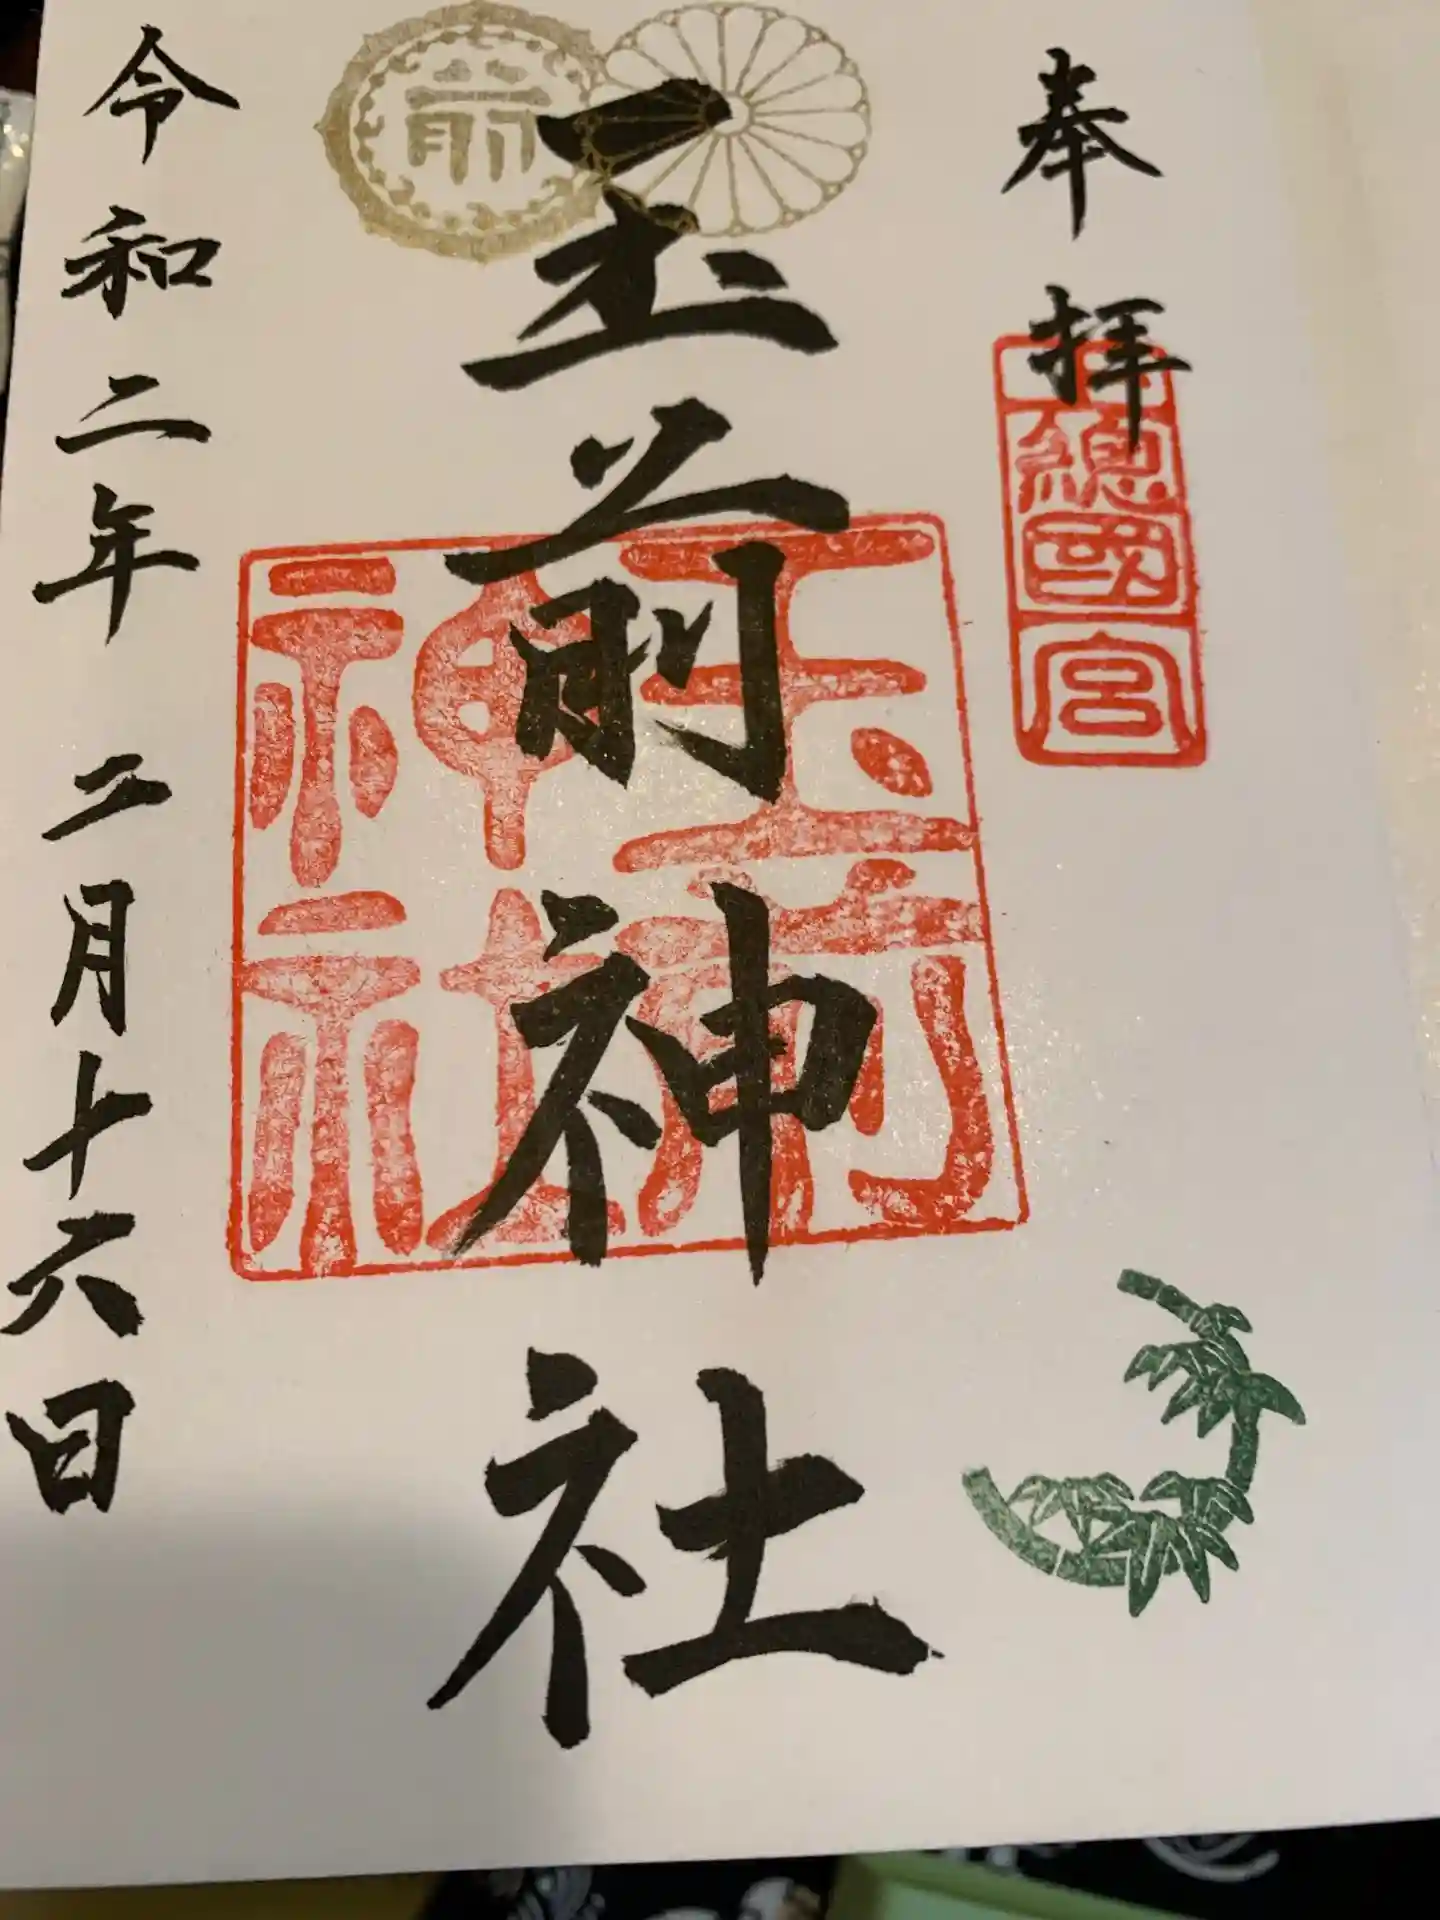 奉拝
總國宮
玉前神社
玉前神社
前
令和二年 二月十六日